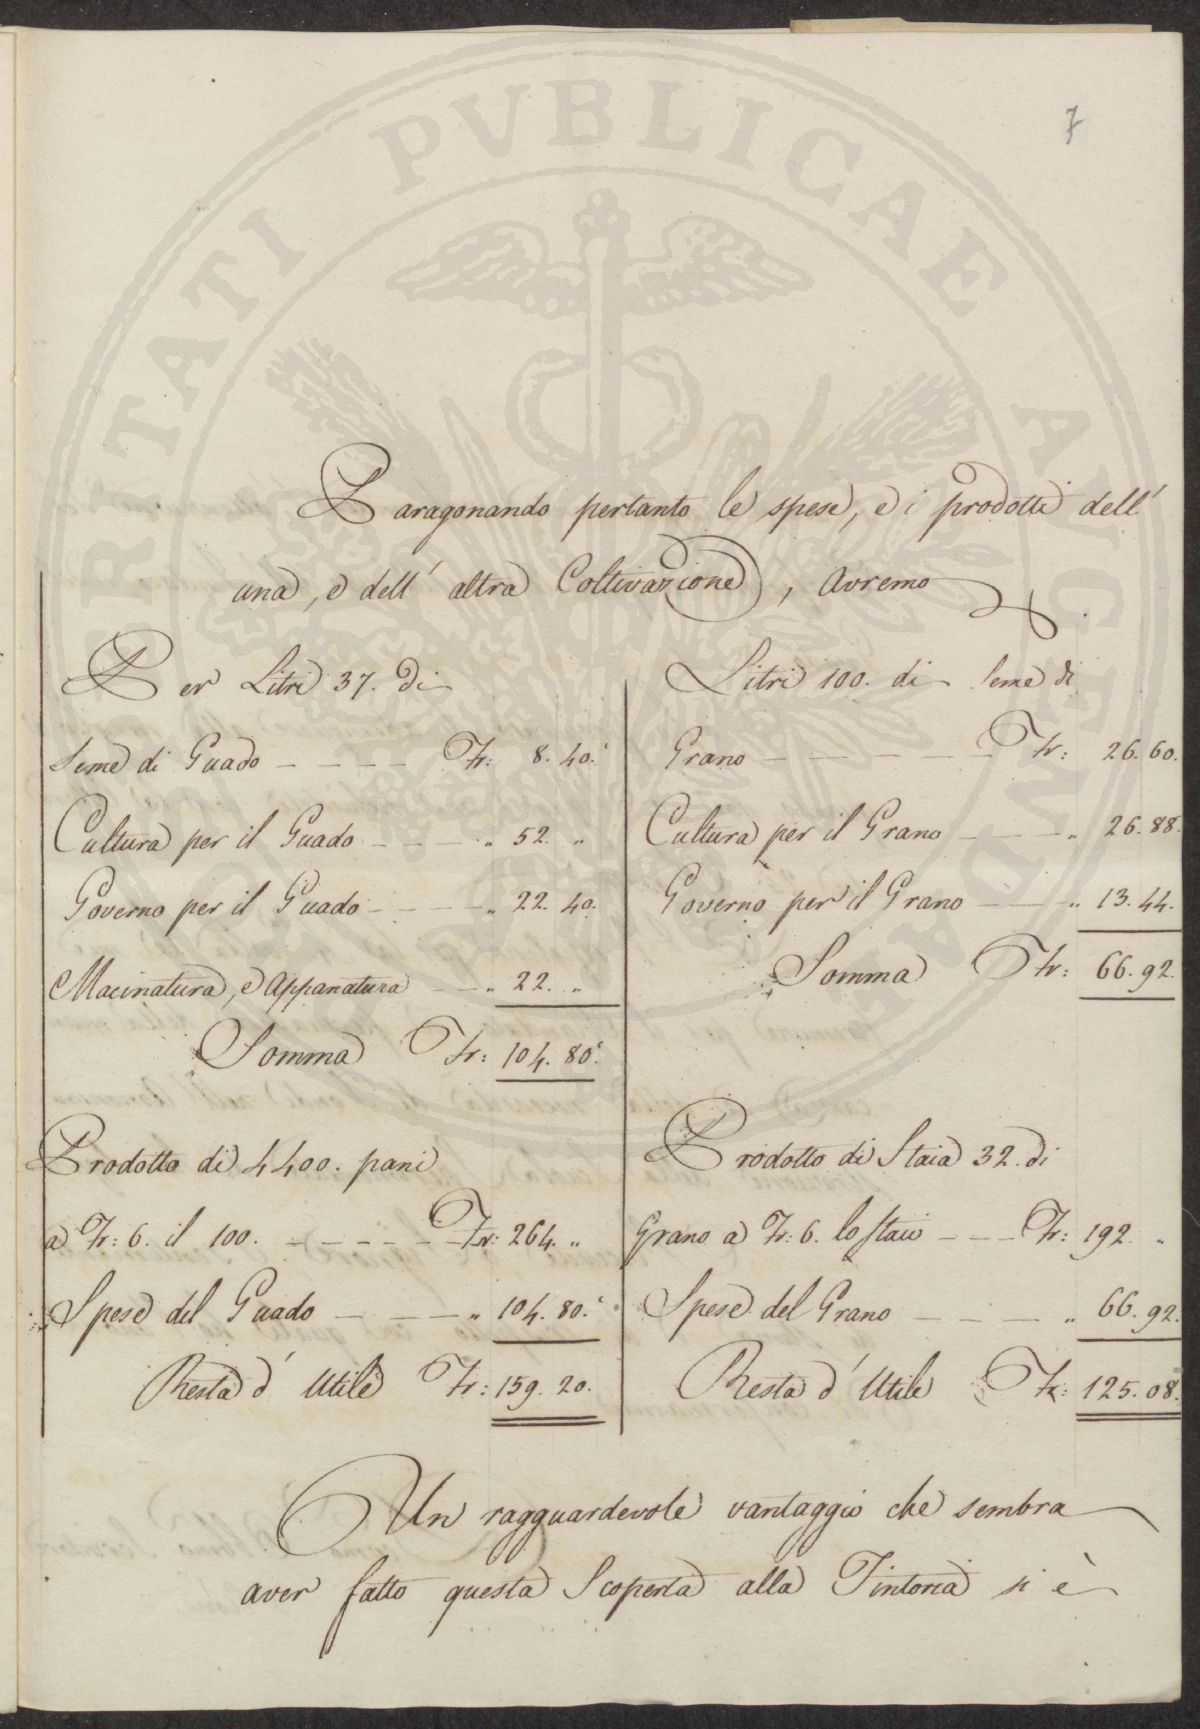 7
Paragonando pertanto le spese, e i prodotti dell'
una, e dell' altra Coltivazione, avremo
Per Litri 37. di
Seme di Guado - - - - Fr: 8. 40.
Cultura per il Guado - - - „ 52. „
Governo per il Guado - - - „ 22. 40.
Macinatura, e Appanatura - - „ 22. „
Somma Fr: 104. 80.
Prodotto di 4400. pani
a Fr: 6. il 100. - - - - - - Fr: 264. „
Spese del Guado - - - „ 104. 80.
Resta d' Utile Fr: 159. 20.
Litri 100. di Seme di
Grano - - - - - - Fr: 26. 60.
Cultura per il Grano - - - „ 26. 88.
Governo per il Grano - - - „ 13. 44.
Somma Fr: 66. 92.
Prodotto di Staia 32. di
Grano a Fr: 6. lo staio - - - Fr: 192. „
Spese del Grano - - - - „ 66. 92.
Resta d' Utile Fr: 125. 08.
Un ragguardevole vantaggio che sembra
aver fatto questa Scoperta alla Tintoria si è